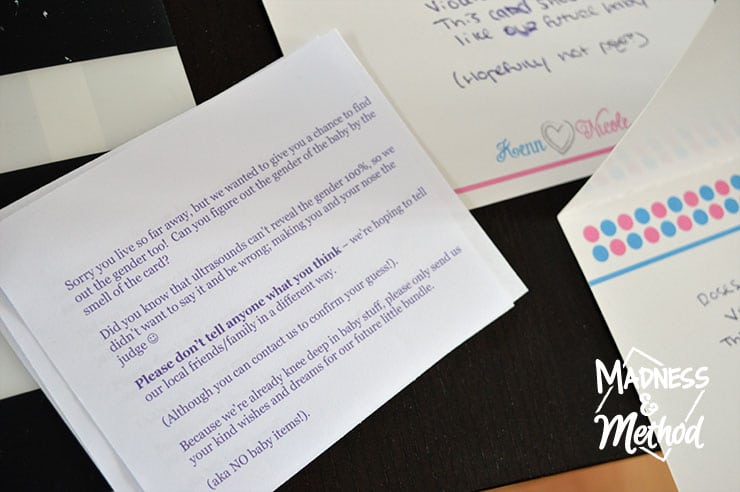 Sorry you live so far away, but we wanted to give you a chance to find
out the gender too!  Can you figure out the gender of the baby by the
smell of the card?
Did you know that ultrasounds can't reveal the gender 100%, so we
didn't want to say it and be wrong; making you and your nose the
judge ☺
Please don't tell anyone what you think – we're hoping to tell
our local friends/family in a different way.
(Although you can contact us to confirm your guess!).
Because we're already knee deep in baby stuff, please only send us
your kind wishes and dreams for our future little bundle.
(aka NO baby items!).
This card
like our future baby
(Hopefully not
Kenn Nicole
Roses
MADNESS
&
Method